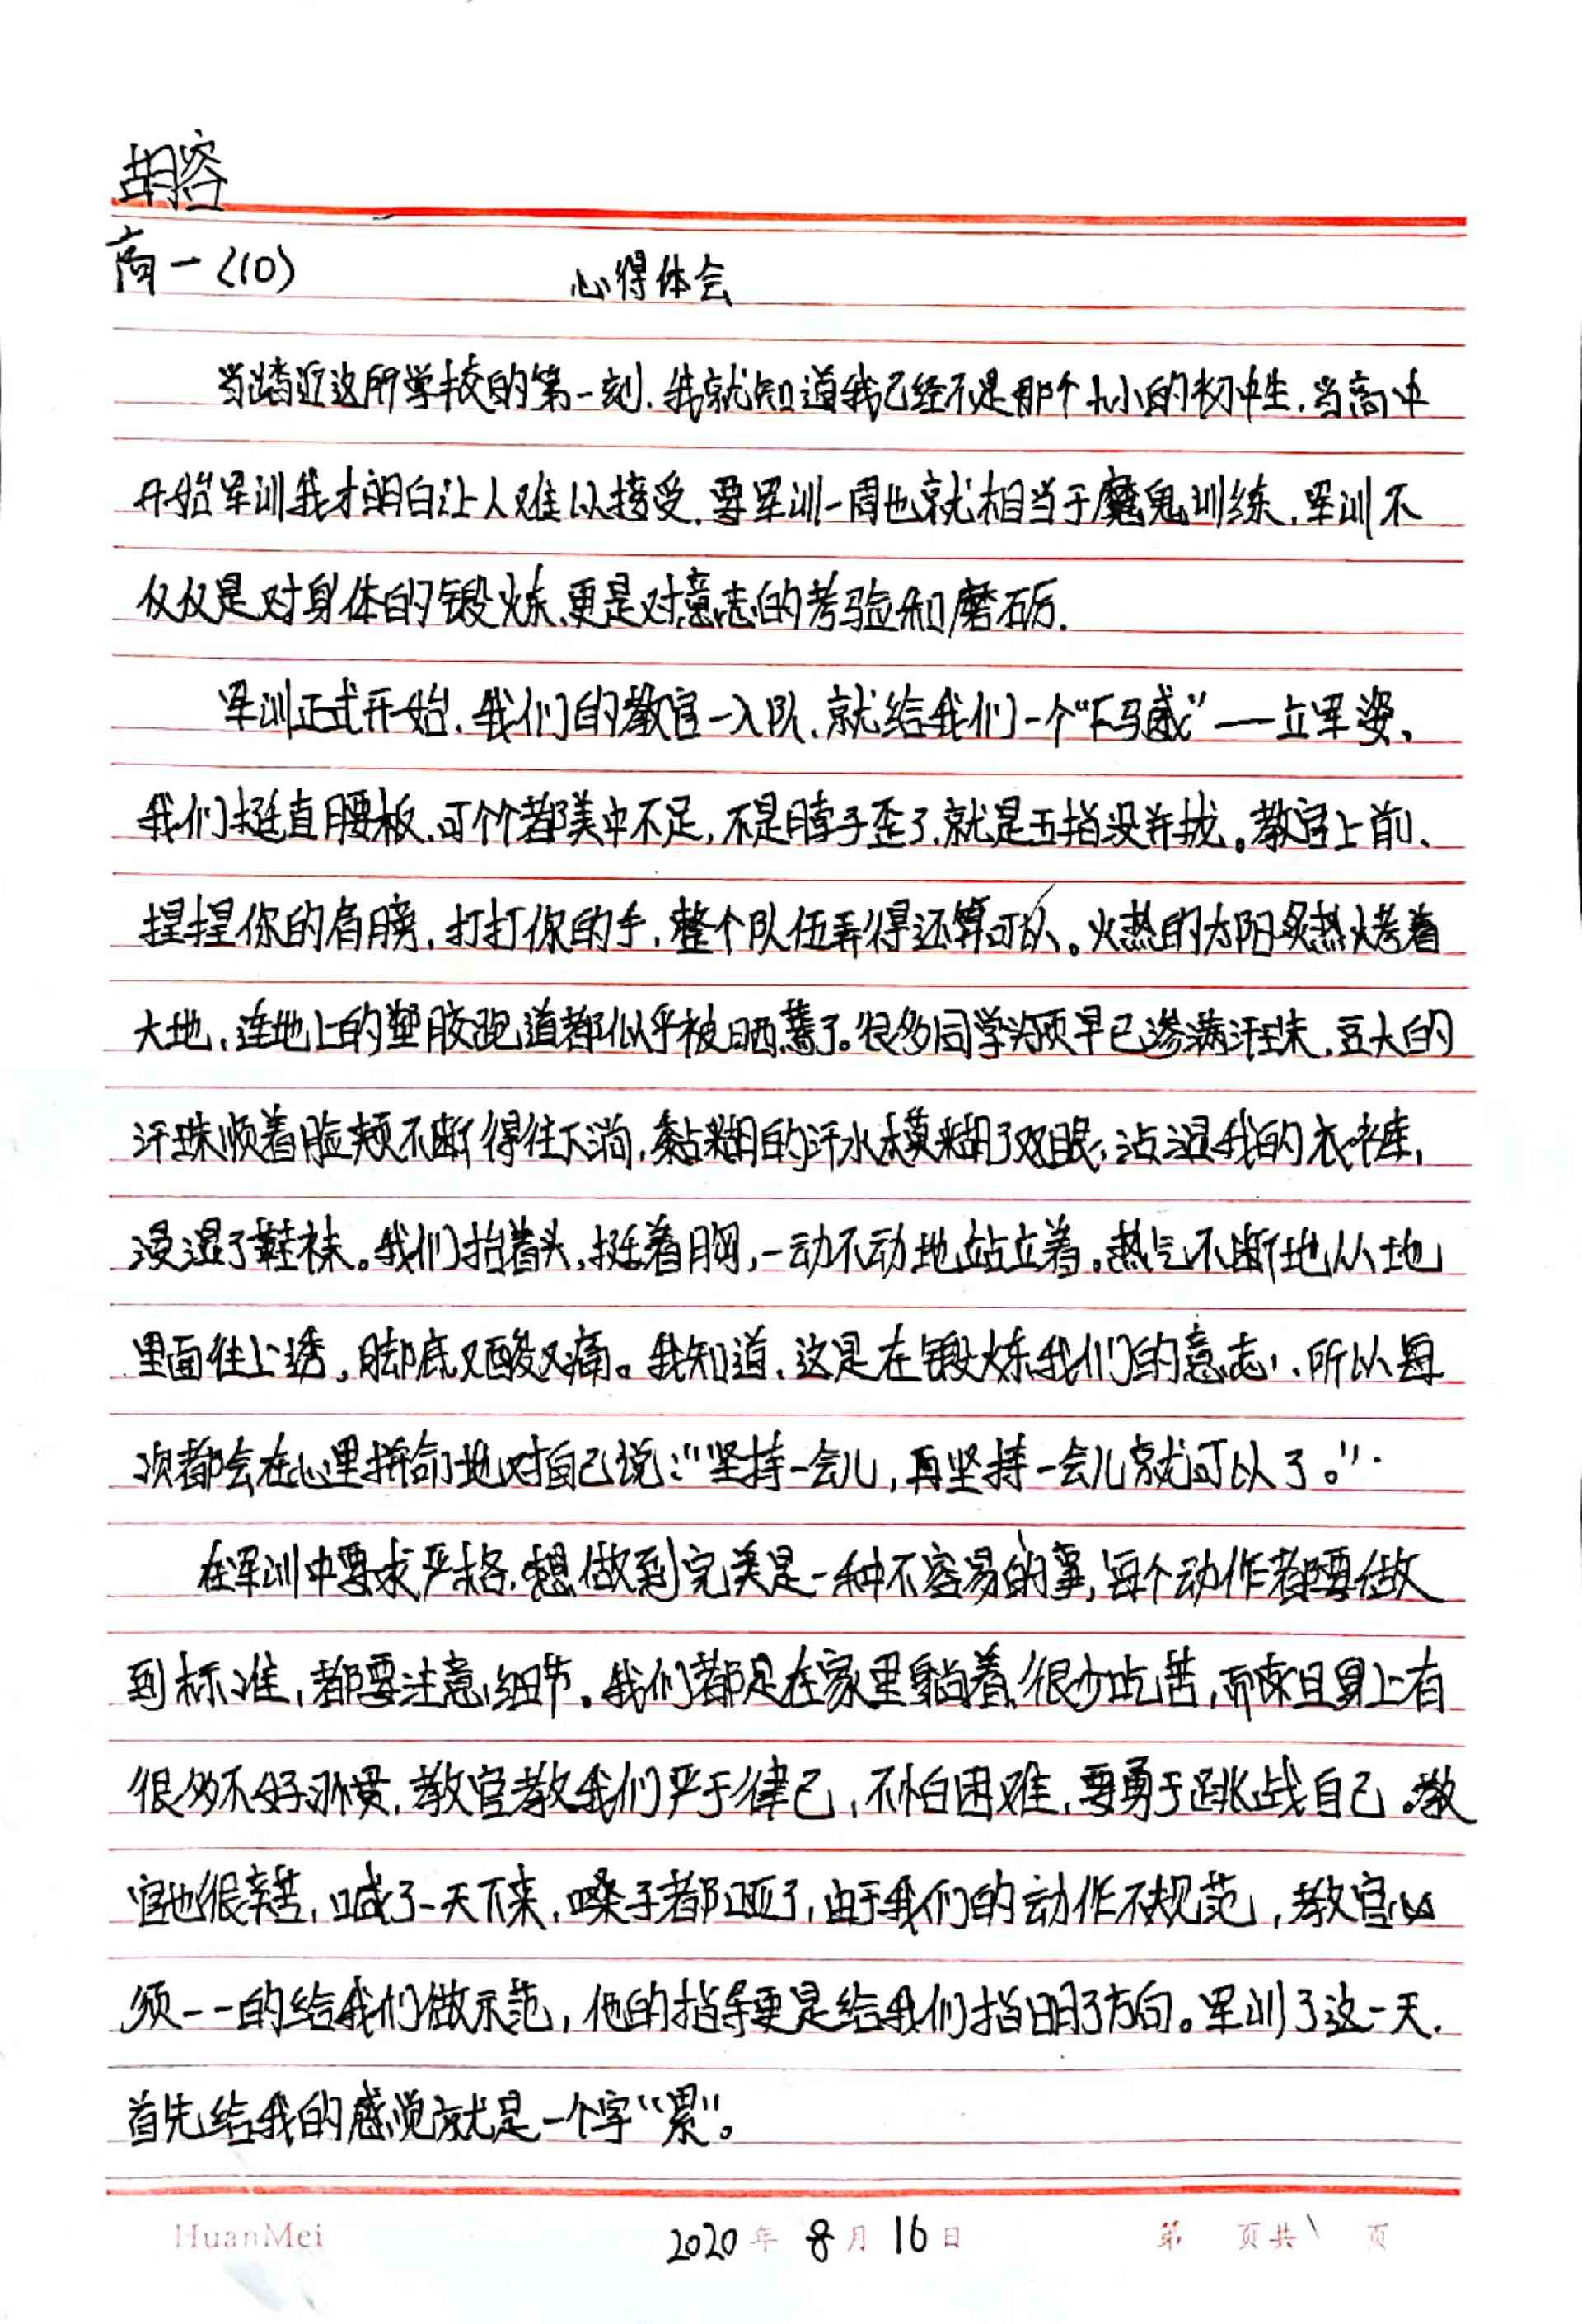 胡容
高一(10)
心得体会
当踏近这所学校的第一刻,我就知道我已经不是那个小小的初中生,当高中
开始军训我才明白让人难以接受,要军训一周也就相当于魔鬼训练,军训不
仅仅是对身体的锻炼,更是对意志的考验和磨砺.
军训正式开始,我们的教官一入队,就给我们一个“下马威”——立军姿、
我们挺直腰板,可个个都美中不足,不是脖子歪了,就是五指没并拢。教官上前、
捏捏你的肩膀,打打你的手,整个队伍弄得还算可以。火热的太阳炙热烤着
大地,连地上的塑胶跑道都似乎被晒蔫了。很多同学头顶早已渗满汗珠,豆大的
汗珠顺着脸颊不断得往下淌,黏糊的汗水模糊了双眼,沾湿我的衣裤,
浸湿了鞋袜。我们抬着头,挺着胸,一动不动地站立着,热气不断地从地
里面往上透,脚底又酸又痛。我知道,这是在锻炼我们的意志,所以每
次都会在心里拼命地对自己说:“坚持一会儿,再坚持一会儿就可以了。”
在军训中要求严格,想做到完美是一种不容易的事,每个动作都要做
到标准,都要注意细节。我们都是在家里躺着,很少吃苦,而且身上有
很多不好习惯,教官教我们严于律己,不怕困难,要勇于跳战自己。教
官也很辛苦,喊了一天下来,嗓子都哑了,由于我们的动作不规范,教官必
须一一的给我们做示范,他的指导更是给我们指明了方向。军训了这一天,
首先给我的感觉就是一个字“累”。
HuanMei
2020年8月16日
第 页共1页